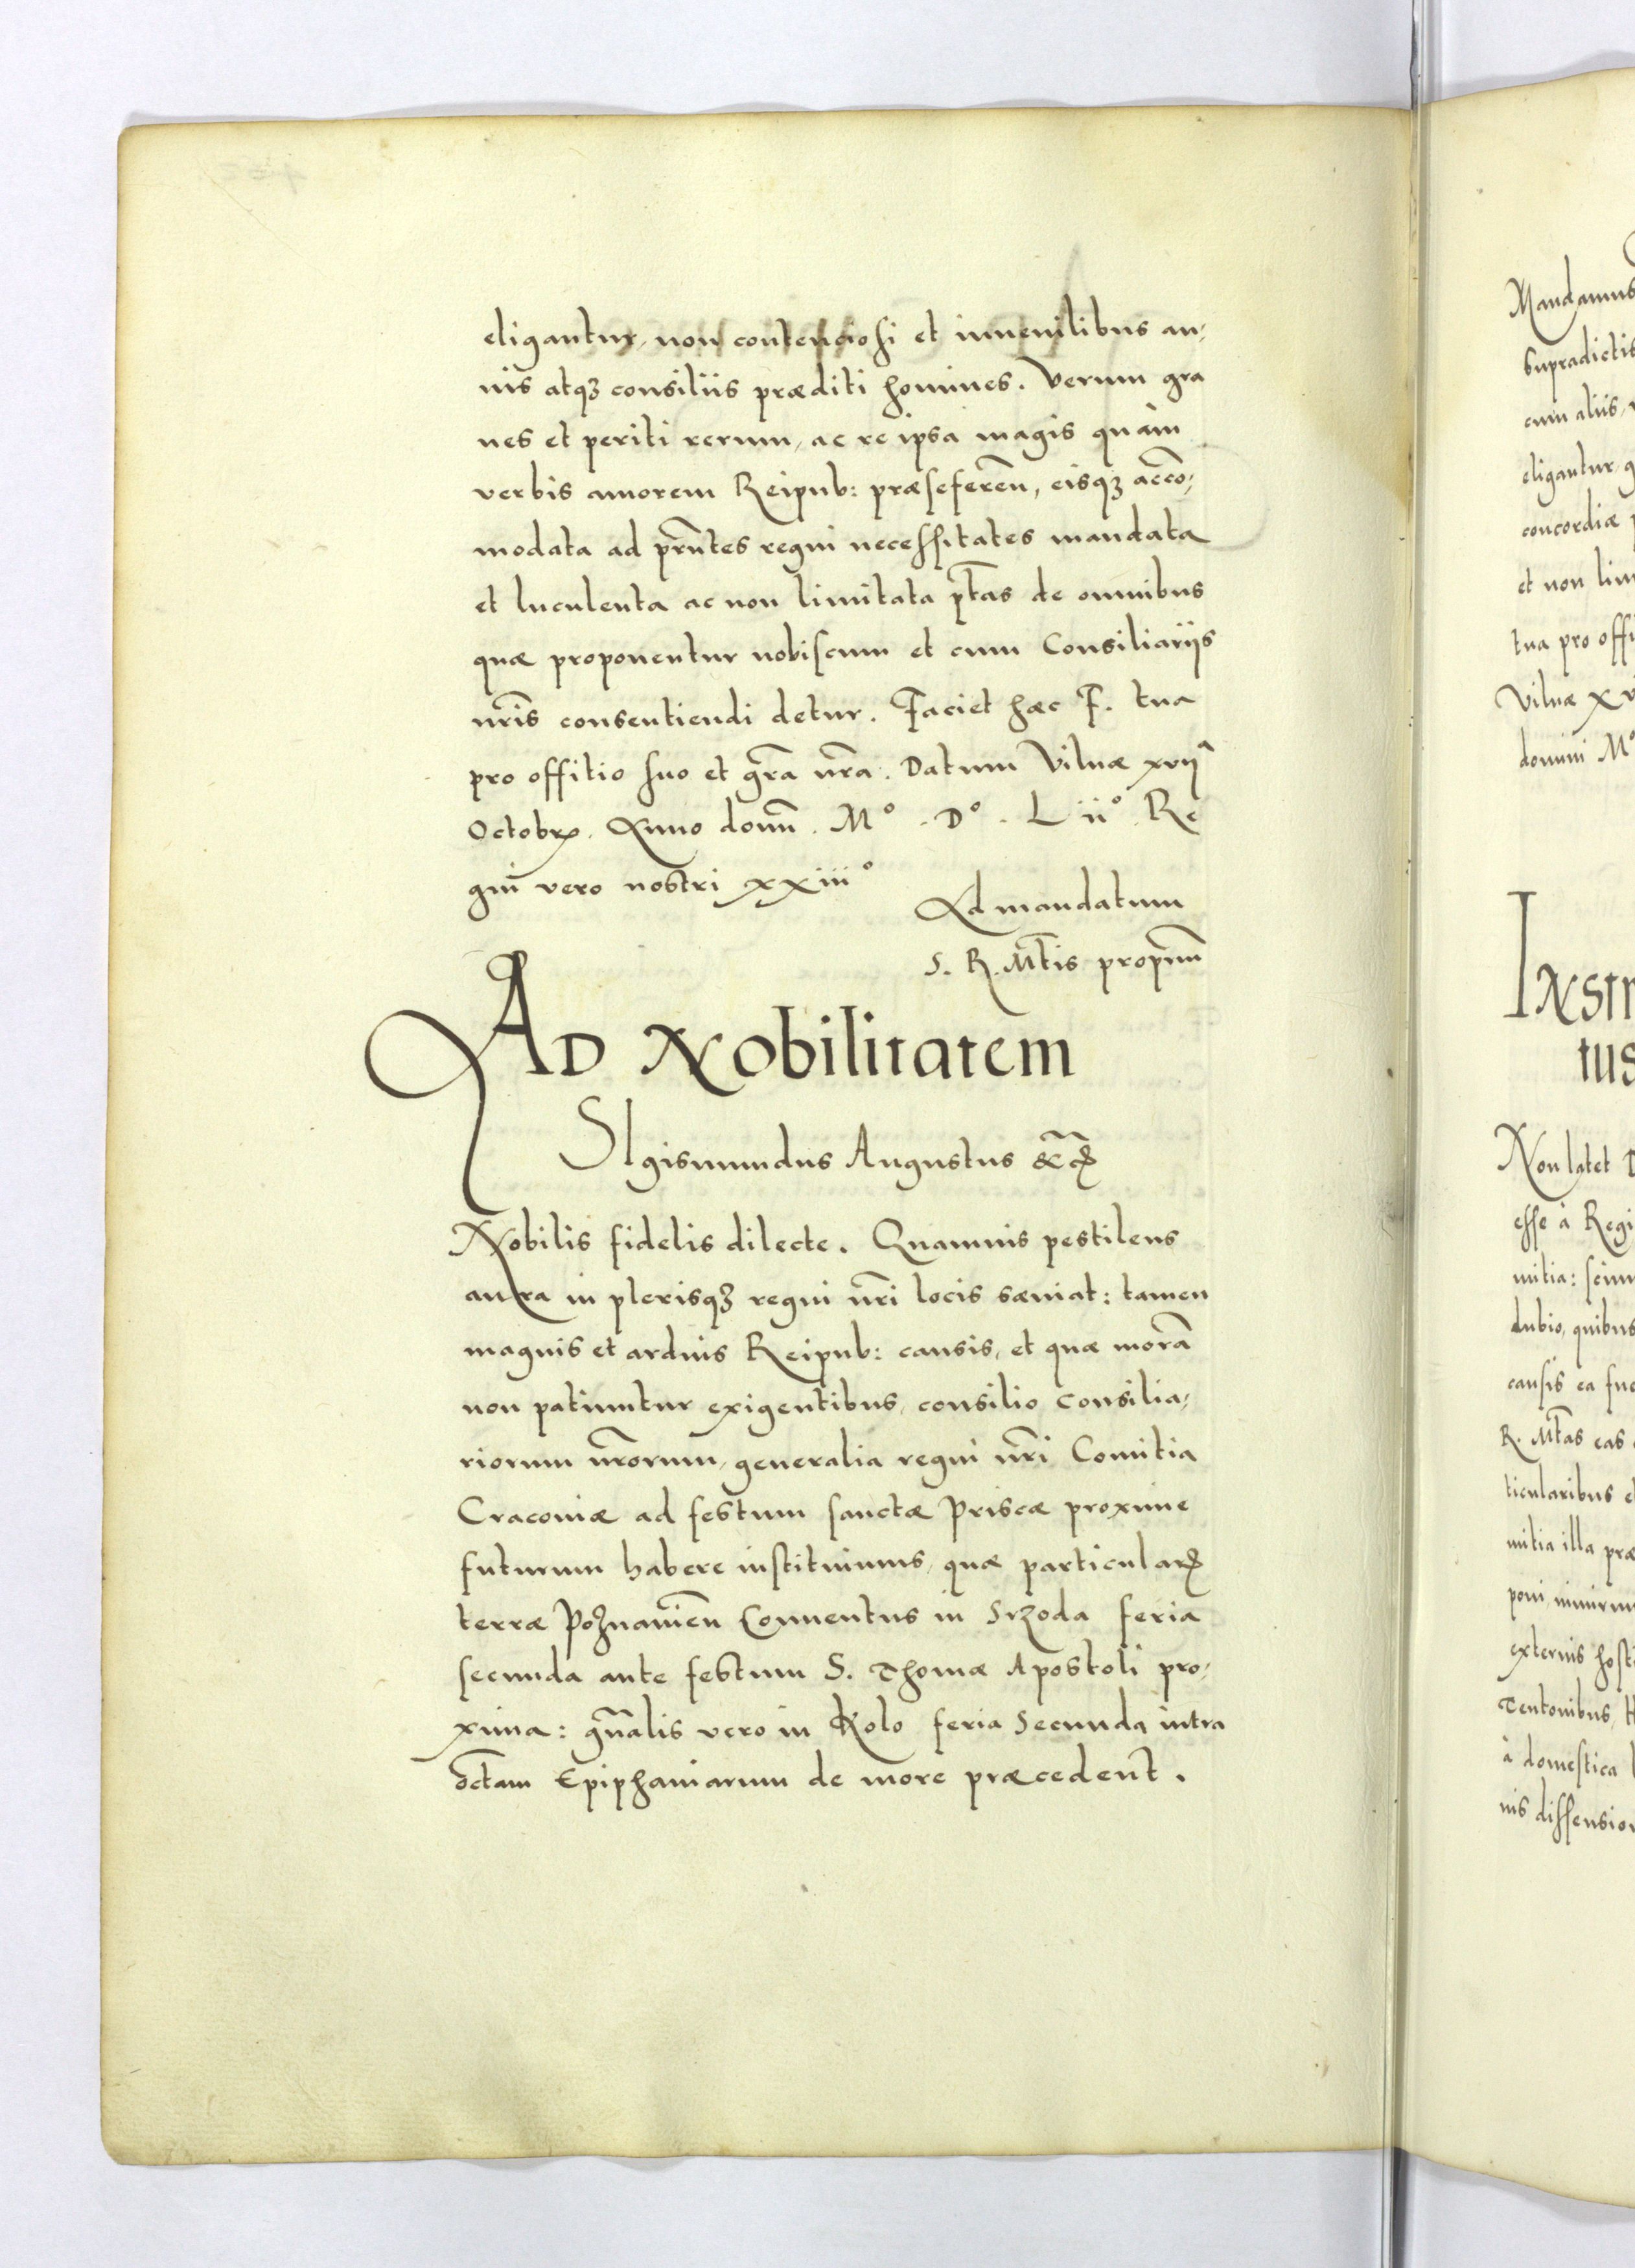 eligantur, non contenciosi et iuuenilibus an,
nis atqꝫ consiliis præditi homines. Verum gra
ues et periti rerum, ac re ipsa magis quàm
verbis amorem Reipub: præseferen̄, eisqꝫ accō,
modata ad prn̄tes regni necessitates mandata
et luculenta ac non limitata ptās de omnibus
quæ proponentur nobiscum et cum Consiliariis
nr̄is consentiendi detur. Faciet hæc F. tua
pro offitio suo et grā nr̄a. Datum Vilnæ xvij
Octobr. Anno domn̄. Mº. Dº. Liiº. Re
gni vero nostri xxiiiº
Ad mandatum
S. R. Mt̄is proprium
AD Nobilitatem
SIgismundus Augustus &c
Nobilis fidelis dilecte. Quamuis pestilens
aura in plerisqꝫ regni nr̄i locis sæuiat: tamen
magnis et arduis Reipub: causis, et quæ morā
non patiuntur exigentibus, consilio consilia,
riorum nr̄orum, generalia regni nr̄i Comitia
Cracouiæ ad festum sanctæ Priscæ proxime
futurum habere instituimus, quæ particular
terræ Poznanien̄ Conuentus in Srzoda feria
secunda ante festum S. Thomæ Apostoli pro,
xima: gn̄alis vero in Kolo feria Secunda intra
octam Epiphaniarum de more præcedent.
Mandamus
supradictis
cum aliis,
eligantur
concordiæ
et non lim
tua pro offi
Vilnæ xv
domini Mº
INSTR
TUS
Non latet
esse à Regi
mitia:
dubio, quibus
causis ea
R. Mt̄as eas
ticularibus
mitia illa præ
poni nimirum
externis hosti
Teutonibus,
à domestica
nis dissension